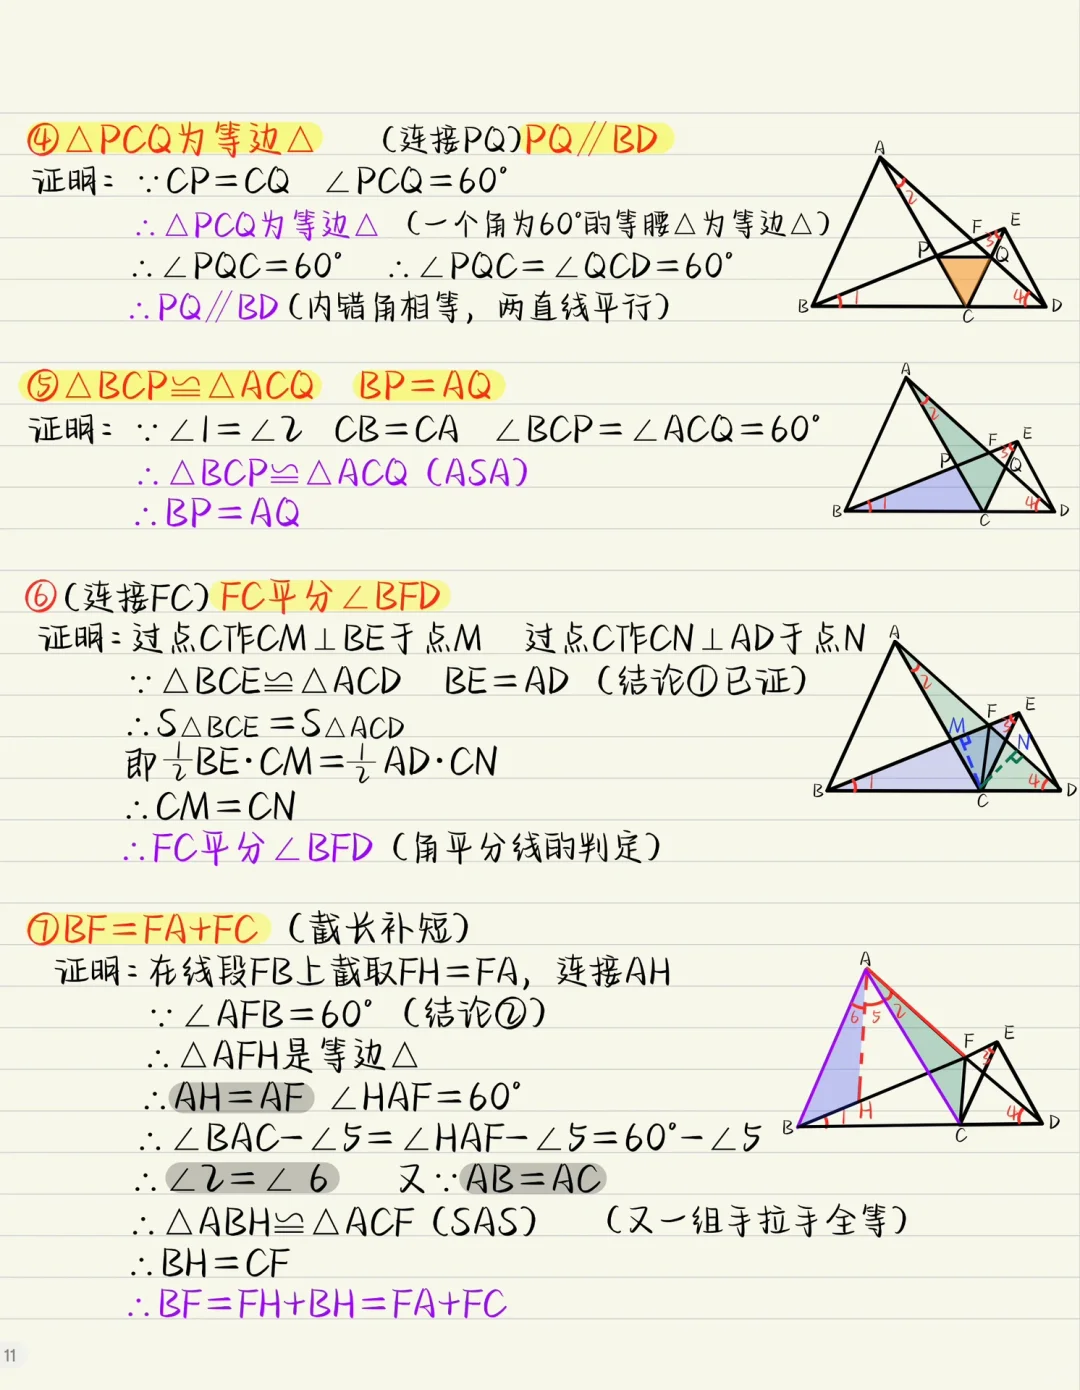 ④△PCQ为等边△ (连接PQ)PQ∥BD
证明：∵CP=CQ ∠PCQ=60°
∴△PCQ为等边△ (一个角为60°的等腰△为等边△)
∴∠PQC=60° ∴∠PQC=∠QCD=60°
∴PQ∥BD(内错角相等，两直线平行)
A
2
F
E
3
P
Q
B
1
4
C
D
⑤△BCP≌△ACQ BP=AQ
证明：∵∠1=∠2 CB=CA ∠BCP=∠ACQ=60°
∴△BCP≌△ACQ(ASA)
∴BP=AQ
A
2
F
E
3
P
Q
B
1
4
C
D
⑥(连接FC)FC平分∠BFD
证明：过点C作CM⊥BE于点M 过点C作CN⊥AD于点N
∵△BCE≌△ACD BE=AD (结论①已证)
∴S△BCE=S△ACD
即½BE·CM=½AD·CN
∴CM=CN
∴FC平分∠BFD(角平分线的判定)
A
2
F
E
M
3
N
B
1
4
C
D
⑦BF=FA+FC (截长补短)
证明：在线段FB上截取FH=FA，连接AH
∵∠AFB=60°(结论②)
∴△AFH是等边△
∴AH=AF ∠HAF=60°
∴∠BAC-∠5=∠HAF-∠5=60°-∠5
∴∠2=∠6 又∵AB=AC
∴△ABH≌△ACF(SAS) (又一组手拉手全等)
∴BH=CF
∴BF=FH+BH=FA+FC
A
6
5
2
F
E
3
B
1
H
4
C
D
11